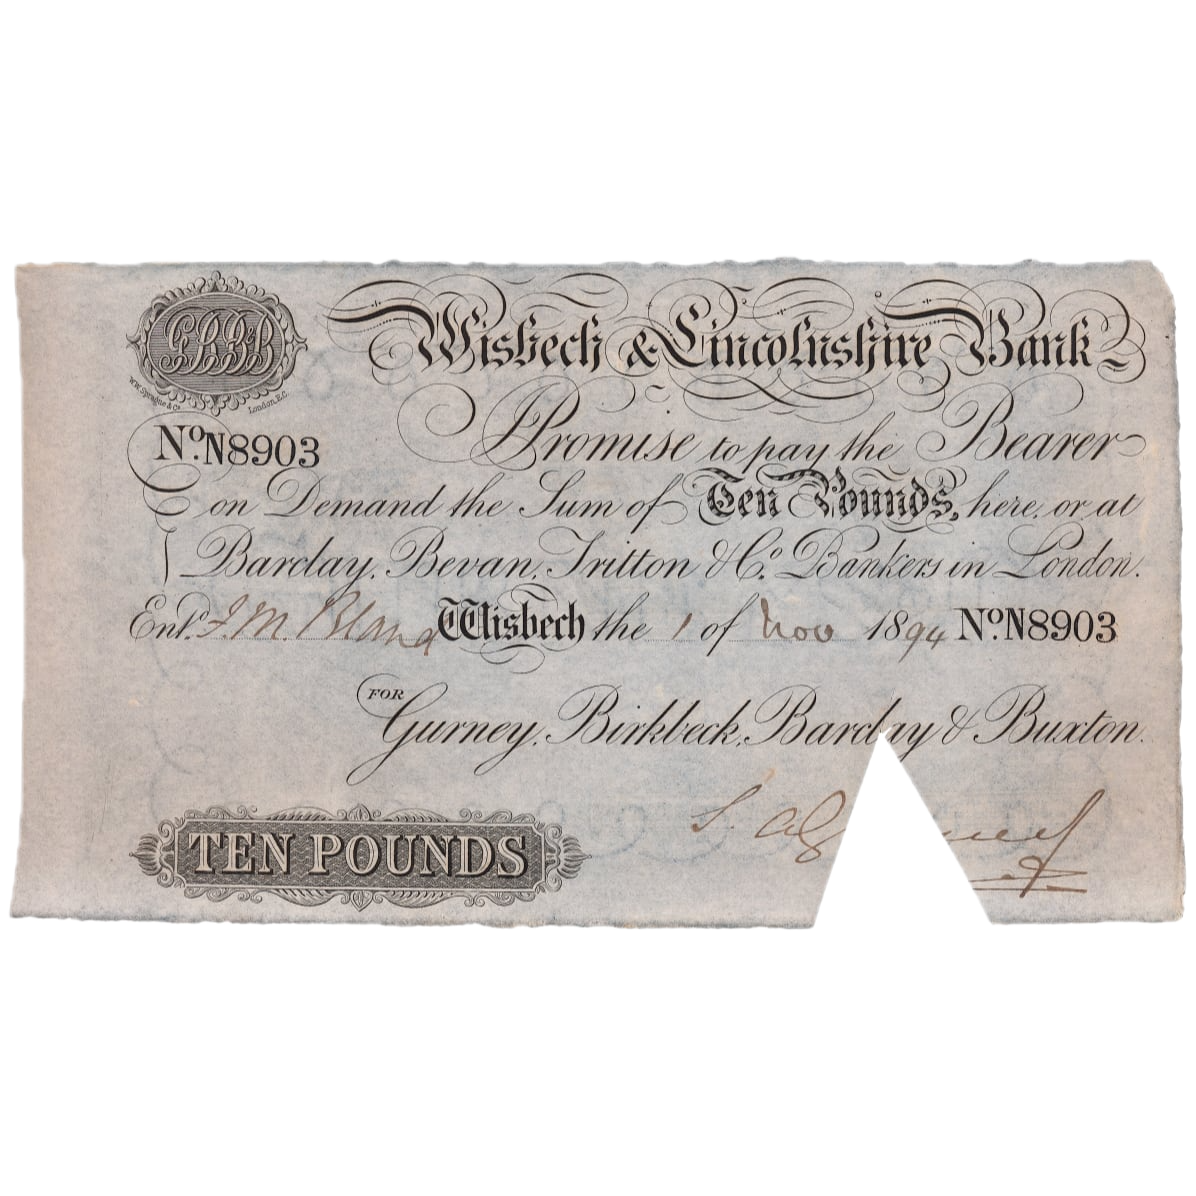 GBBB
Wisbech & Lincolnshire Bank
Wm. Sprague & Co. London, E.C.
No. N8903
I Promise to pay the Bearer
on Demand the Sum of Ten Pounds, here, or at
Barclay, Bevan, Tritton & Co. Bankers in London.
Entd. J. M. Bland Wisbech the 1 of Nov 1894 No. N8903
FOR
Gurney, Birkbeck, Barclay & Buxton.
TEN POUNDS